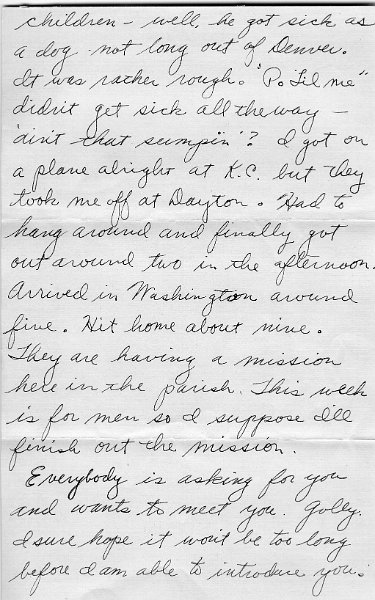 children - well, he got sick as
a dog not long out of Denver.
It was rather rough. "Po 'Lil me"
didn't get sick all the way -
'ain't that sumpin'? I got on
a plane alright at K.C. but they
took me off at Dayton. Had to
hang around and finally got
out around two in the afternoon.
Arrived in Washington around
five. Hit home about nine.
They are having a mission
here in the parish. This week
is for men so I suppose I'll
finish out the mission.
Everybody is asking for you
and wants to meet you. Golly.
I sure hope it won't be too long
before I am able to introduce you.